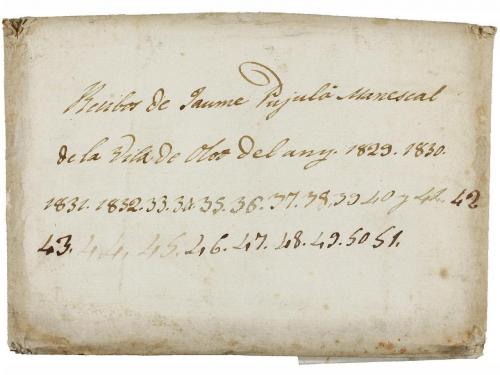 Recibos de Jaume Pujulà Manescal
de la Vila de Olot del any. 1829. 1830.
1831. 1832. 33. 34. 35. 36. 37. 38. 39 40 y 41. 42
43. 44. 45. 46. 47. 48. 49. 50 51.